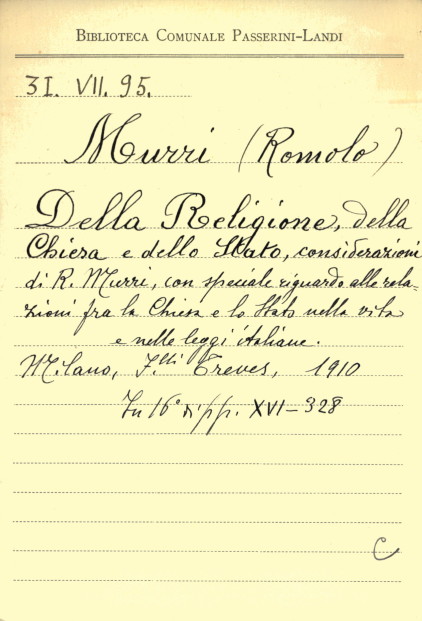 BIBLIOTECA COMUNALE PASSERINI-LANDI
3I. VII. 95.
Murri (Romolo)
Della Religione, della
Chiesa e dello Stato, considerazioni
di R. Murri, con speciale riguardo alle rela-
zioni fra la Chiesa e lo Stato nella vita
e nelle leggi italiane.
Milano, F.lli Treves, 1910
In 16° di pp. XVI-328
C